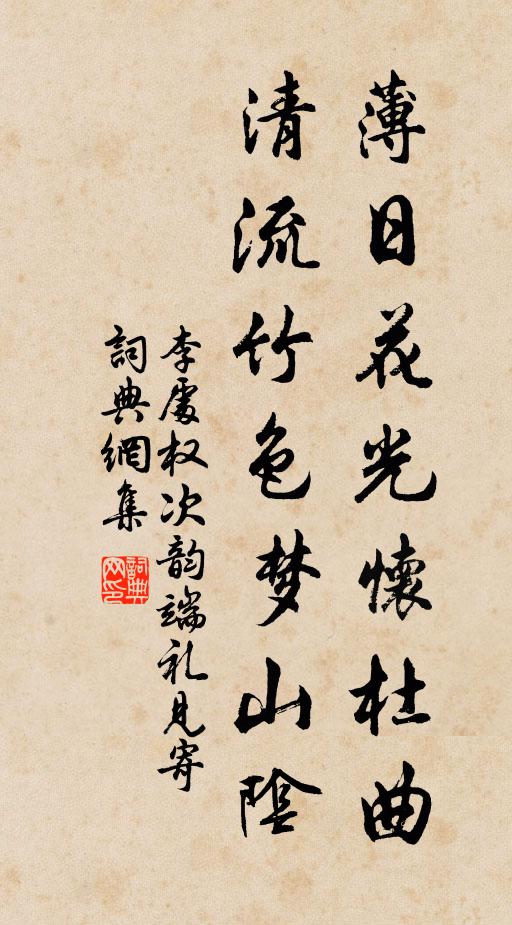 薄日花光懷杜曲
清流竹色梦山陰
李處权次韵端礼見寄
詞典網集
詞典网印